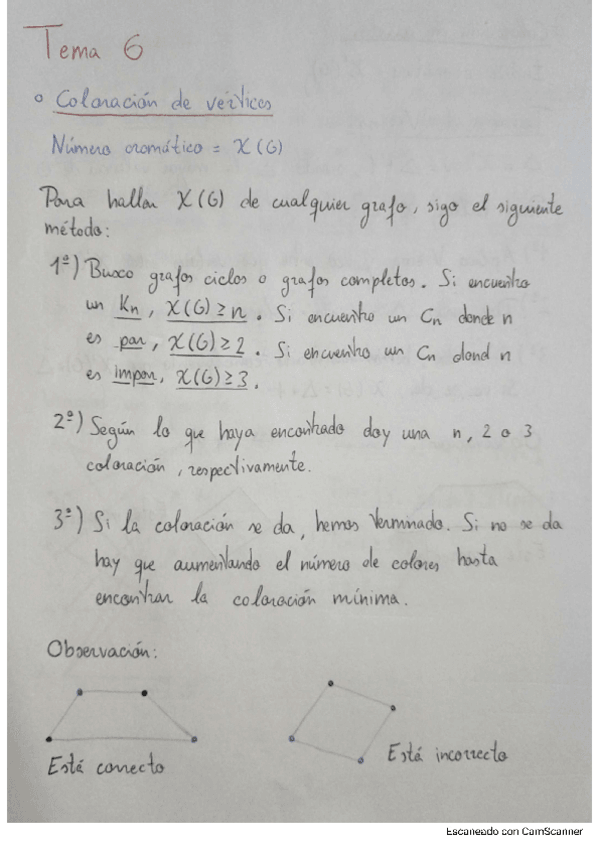 Tema 6
Coloración de vértices
Número cromático = χ(G)
Para hallar χ(G) de cualquier grafo, sigo el siguiente
método:
1º) Busco grafos ciclos o grafos completos. Si encuentro
un Kn, χ(G) ≥ n. Si encuentro un Cn donde n
es par, χ(G) ≥ 2. Si encuentro un Cn dond n
es impar, χ(G) ≥ 3.
2º) Según lo que haya encontrado doy una n, 2 o 3
coloración, respectivamente.
3º) Si la coloración se da, hemos terminado. Si no se da
hay que aumentando el número de colores hasta
encontrar la coloración mínima.
Observación:
Está correcto
Está incorrecto
Escaneado con CamScanner